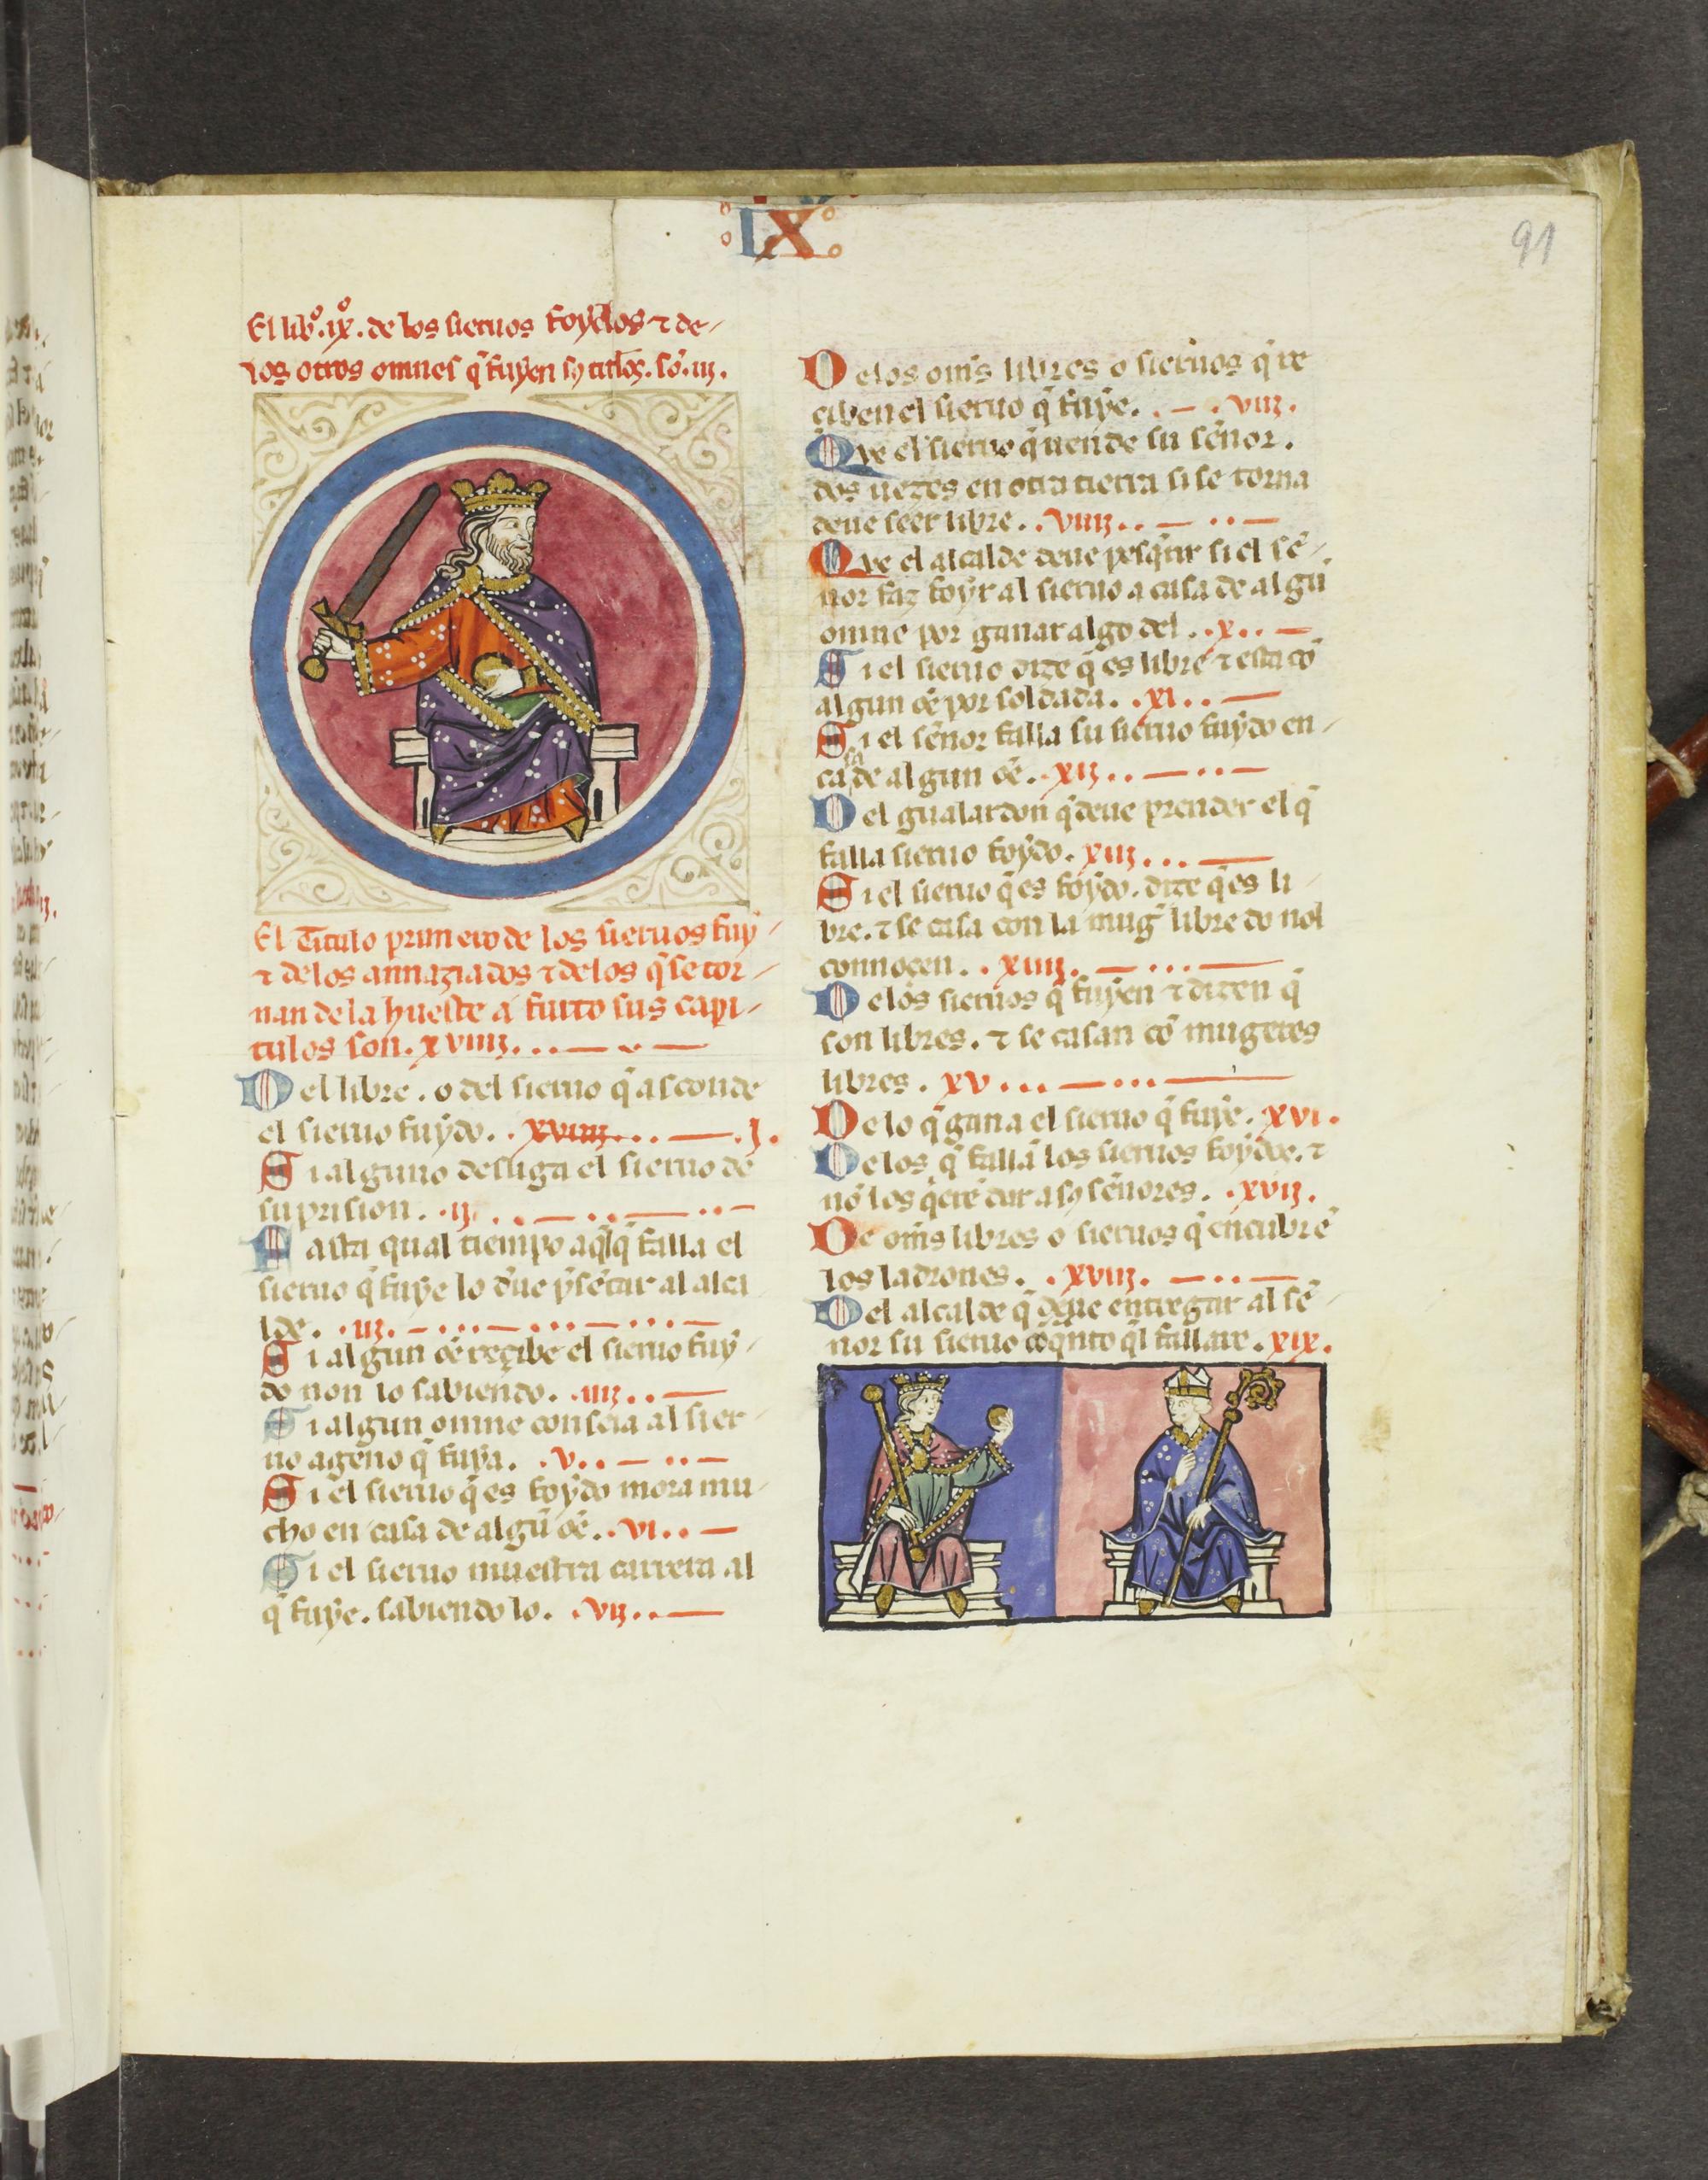 IX
91
El libº .ixº. de los sieruos foydos ⁊ de-
los otros omnes q̃ fuyen sꝯ titlos. sõ .iij.
El Titulo primero de los sieruos fuy-
⁊ de los annaziados ⁊ de los q̃ se tor-
nan de la hueste a furto sus capi-
tulos son. xviiij.
Del libre. o del sieruo q̃ asconde
el sieruo fuydo. .xviiij. .j.
Si alguno desliga el sieruo de
su prision. .ij.
Fasta qual tiempo aq̃l q̃ falla el
sieruo q̃ fuye lo deue p̃sẽtar al alca
lde. .iij.
Si algun oẽ reçibe el sieruo fuy-
do non lo sabiendo. .iiij.
Si algun omne conseia al sier-
uo ageno q̃ fuya. .v.
Si el sieruo q̃ es foydo mora mu-
cho en casa de algũ oẽ. .vi.
Si el sieruo muestra carrera al
q̃ fuye. sabiendo lo. .vij.
De los om̃s libres o sieruos q̃ re
çiben el sieruo q̃ fuye. .viij.
Que el sieruo q̃ uende su sẽnor.
dos uezes en otra tierra si se torna
deue seer libre. .viiij.
Que el alcalde deue pesq̃rir si el sẽ-
nor faz foyr al sieruo a casa de algũ
omne por ganar algo del. .x.
Si el sieruo dize q̃ es libre ⁊ esta cõ
algun oẽ por soldada. .xi.
Si el sẽnor falla su sieruo fuydo en-
casa de algun oẽ. .xij.
Del gualardon q̃ deue prender el q̃
falla sieruo foydo. xiij.
Si el sieruo q̃ es foydo. dize q̃ es li-
bre. ⁊ se casa con la mug̃ libre do nol
connoçen. .xiiij.
De los sieruos q̃ fuyen ⁊ dizen q̃
son libres. ⁊ se casan cõ mugeres
libres. xv.
De lo q̃ gana el sieruo q̃ fuye. xvi.
De los q̃ fallã los sieruos foydos. ⁊
nõ los q̃erẽ dar a sꝯ sẽnores. .xvij.
De om̃s libres o sieruos q̃ encubrẽ
los ladrones. .xviij.
Del alcalde q̃ deue entregar al sẽ-
nor su sieruo cõ q̃nto q̃l fallare. xix.